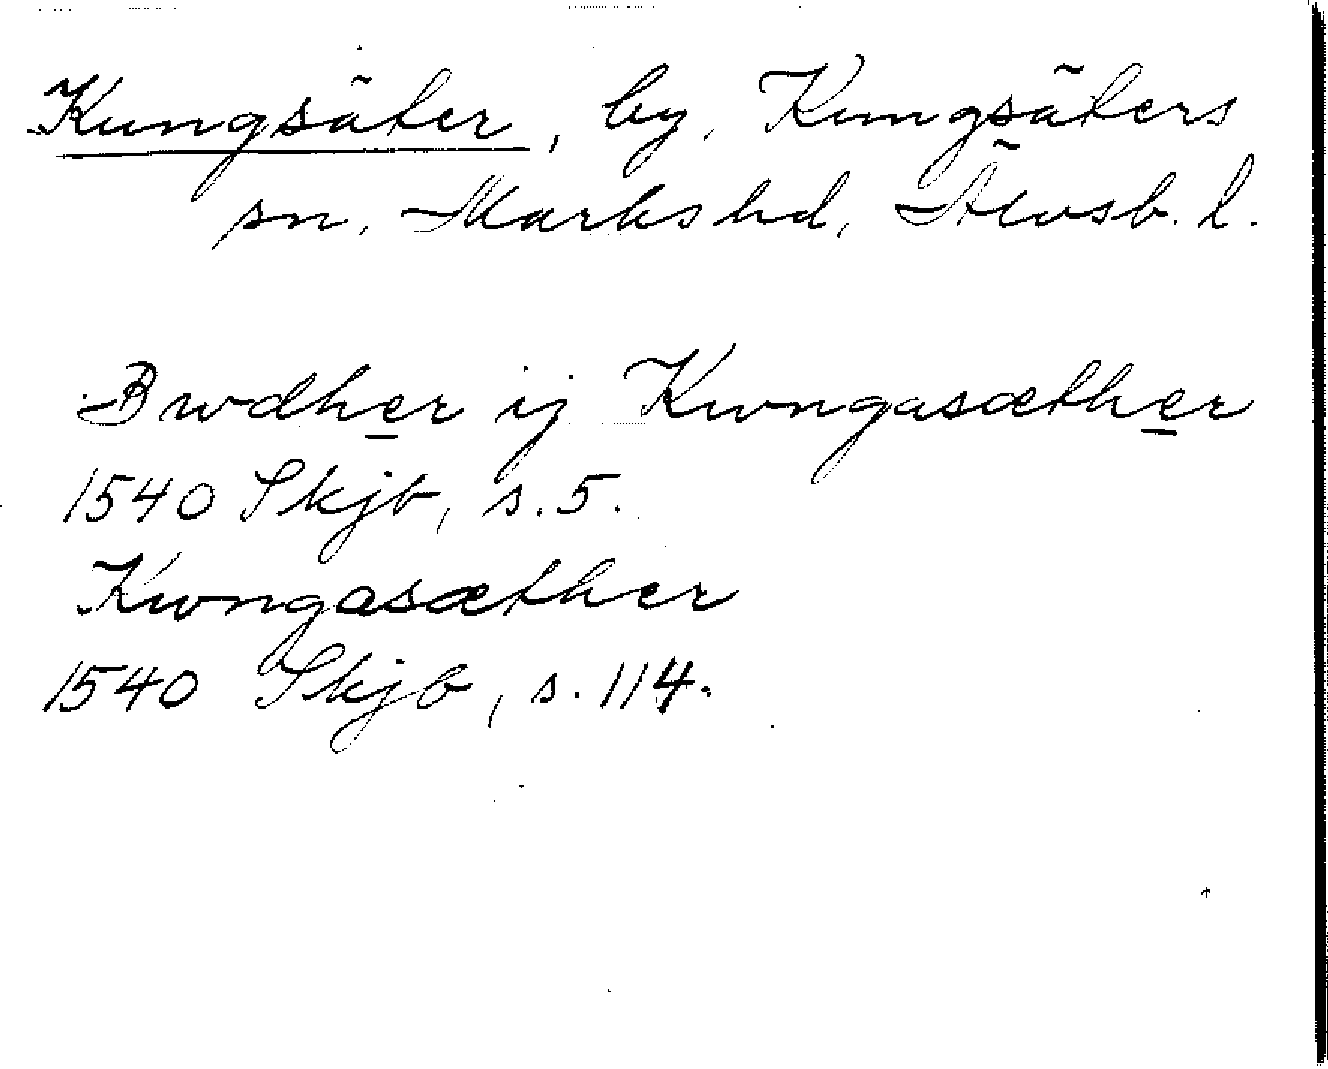 Kungsäter, by, Kungsäters
sn, Marks hd, Älvsb. l.
Bwdher ij Kwngasæther
1540 Skjb, s. 5.
Kwngasæther
1540 Skjb, s. 114.